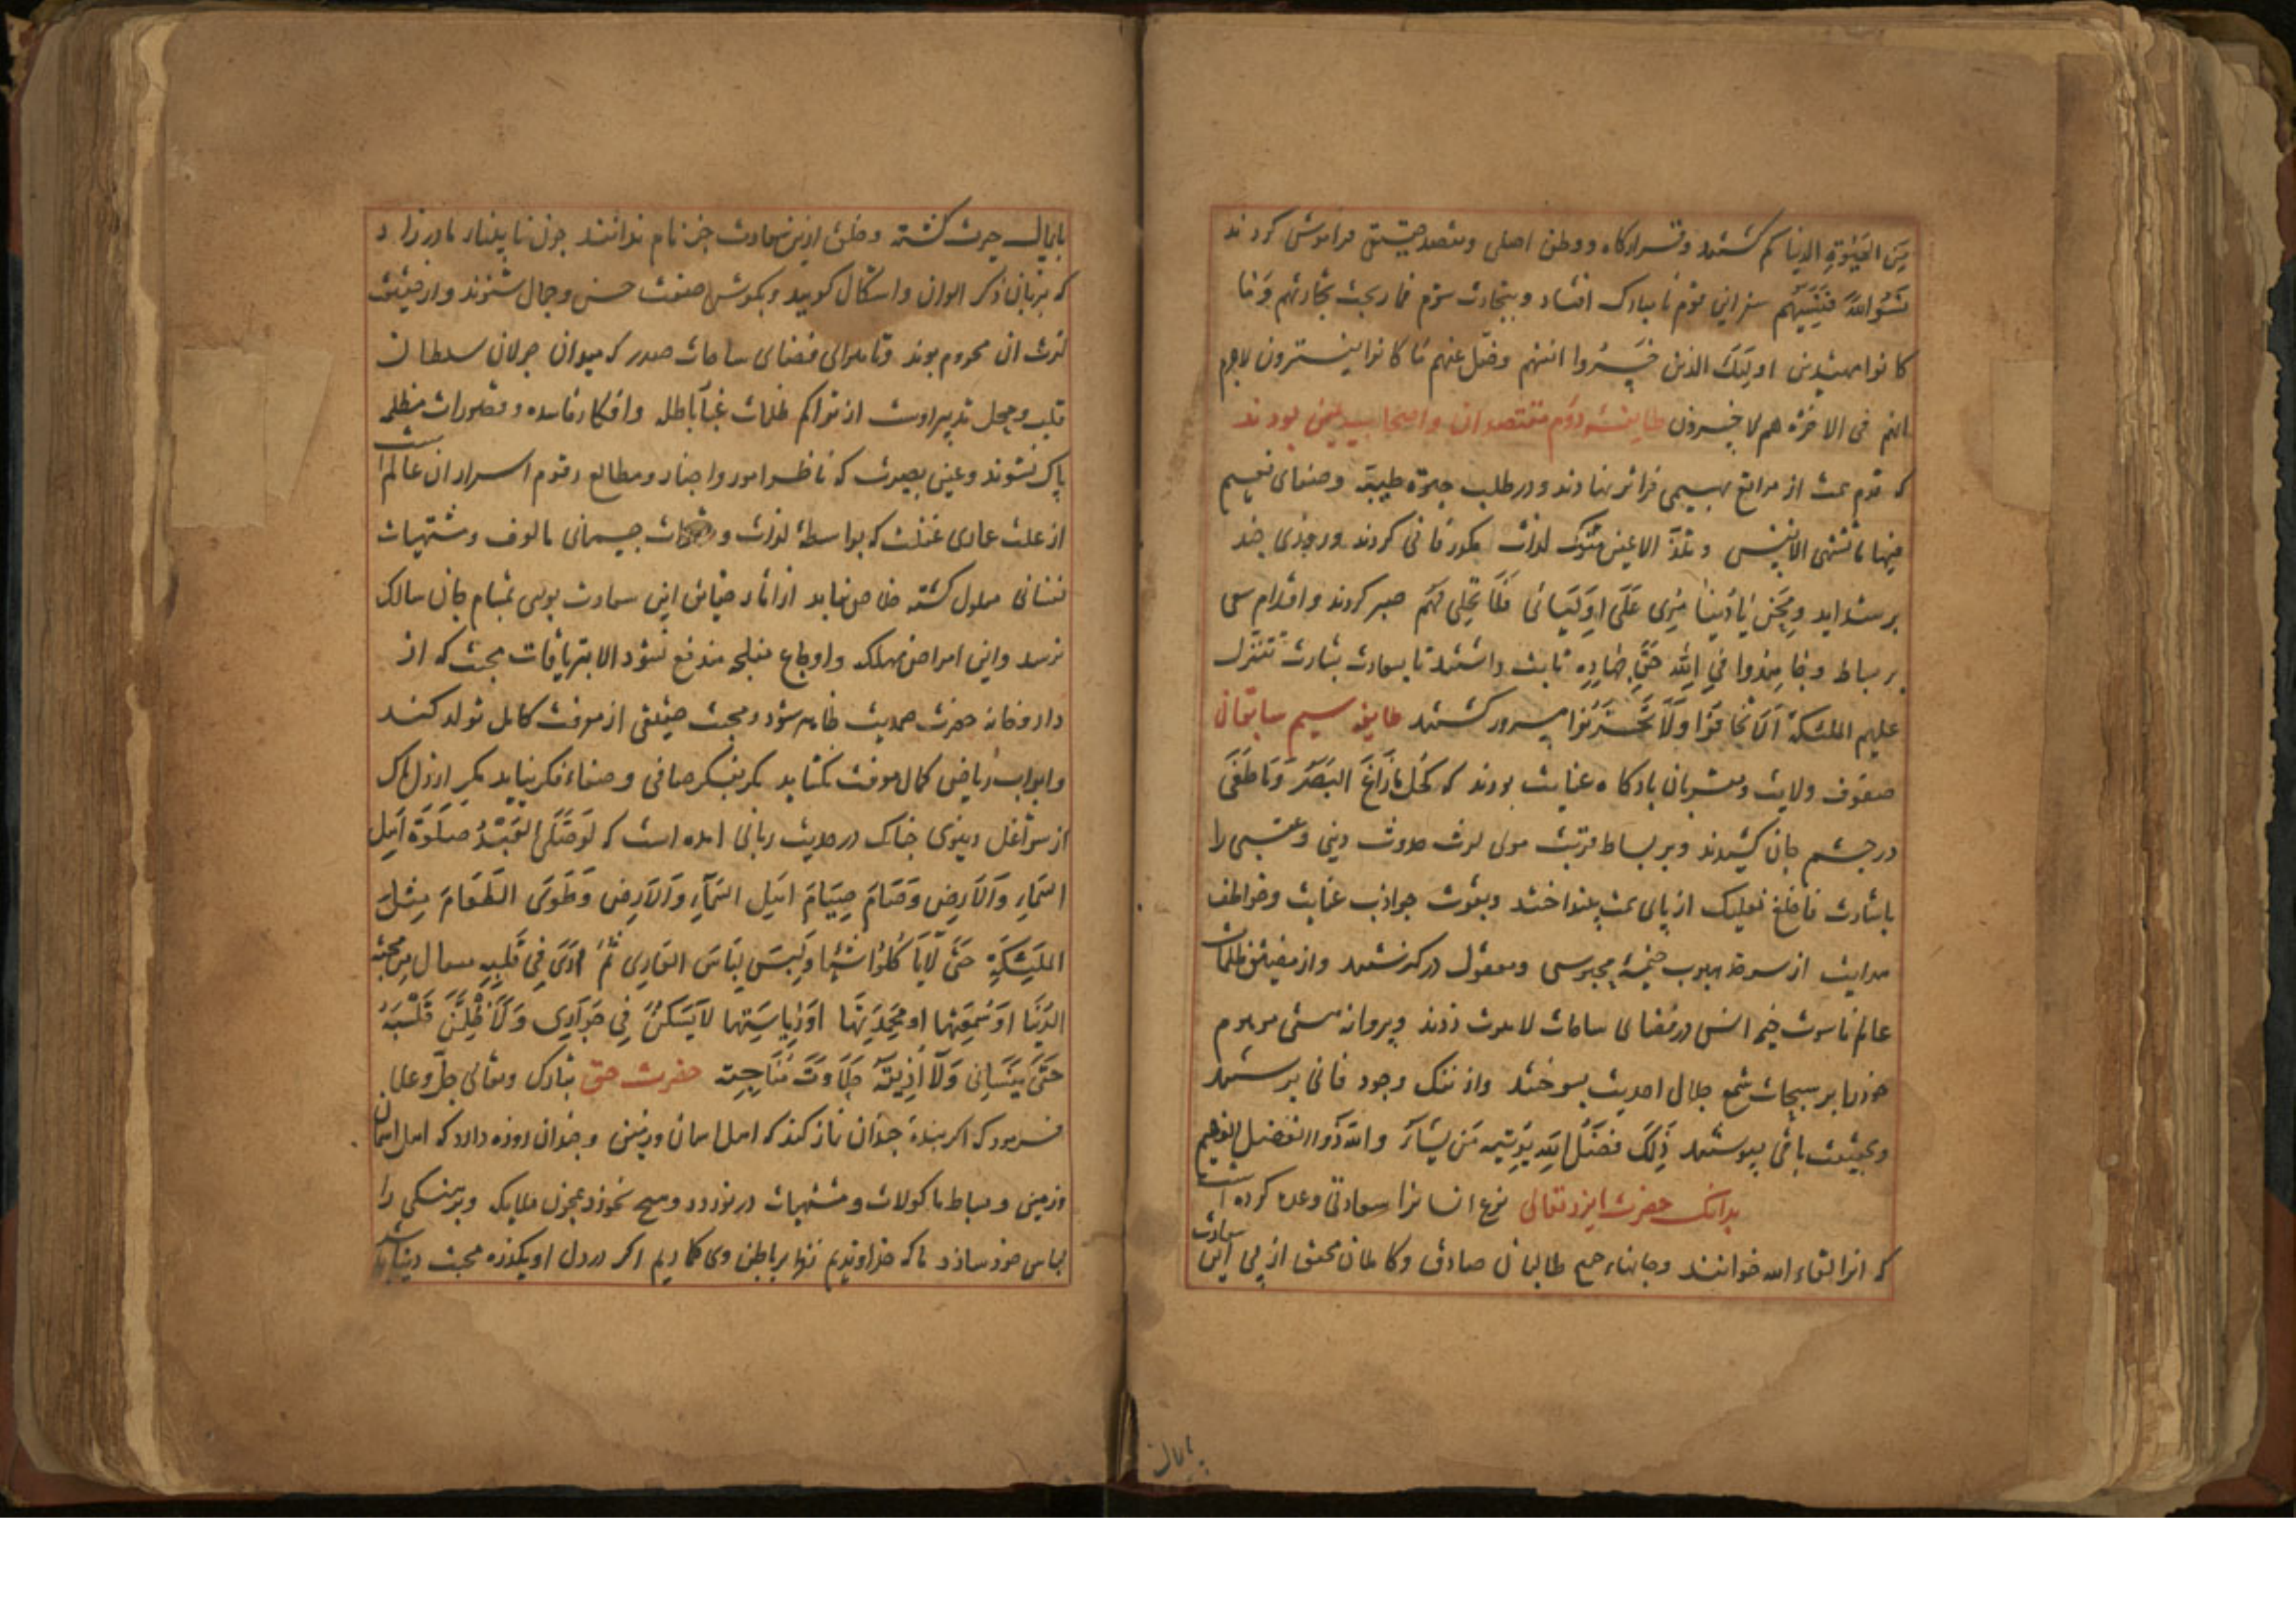 من الحیوة الدنیا کم کشتند و قرارکاه و وطن اصلی و مقصد حقیقی فراموش کردند
نسوا الله فنسیهم این قوم نا مبارک افتاد و بتجارت شوم فما ربحت تجارتهم وما
کانوا مهتدین اولیک الذین خسروا انفسهم وضل عنهم ما کانوا یفترون لاجرم
انهم فی الاخرة هم لاخسرون طایفه دوم مقتصدان و اصحاب یمین بودند
که قدم همت از مراتع بهیمی فراتر نهادند و در طلب حیوة طیبة و صفای نعیم
فیها ما تشتهی الانفس و تلذ الاعین متروک لذات مکدر فانی کردند و روزی چند
بر شداید و محن یا دنیا مری علی اولیائی فلا تحلی لهم صبر کردند و اقدام سعی
بر بساط وجاهدوا فی الله حق جهاده ثابت داشتند تا بسعادت بشارت تتنزل
علیهم الملئکة الا تخافوا ولا تحزنوا مسرور کشتند طایفه سیم سابقان
صفوف ولایت و مقربان بارکاه عنایت بودند که کحل ما زاغ البصر وما طغی
در چشم جان کشیدند و بر بساط قربت مولی لوث حدوث دینی و عقبی را
باشارت فاخلع نعلیک از پای همت بینداختند و بقوت جواذب عنایت و خواطف
هدایت از سرحد محسوس و معقول در کذشتند و از مضیق ظلمات
عالم ناسوت خیمه انس در فضای ساحات لاهوت زدند و پروانه هستی موهوم
خود را بر سبحات شمع جلال احدیت بسوختند و از ننک وجود فانی برستند
و بحقیقت باقی بپیوستند ذلک فضل الله یؤتیه من یشاء والله ذو الفضل العظیم
بدانک حضرت ایزد تعالی نوع انسانرا سعادتی وعده کرده است
که انرا لقاء الله خوانند و جانهاء جمیع طالبان صادق و کاملان محقق از پی این سعادت
پایمال
پایمال حیرت کشته و خلق ازین سعادت جز نام ندانند چون نا بینای مادرزاد
که بزبان ذکر الوان و اشکال کویید و بکوش صفت حسن و جمال شنوند و از حقیقت
لذت ان محروم بوند و تا هوای فضای ساحات صدر که میدان جولان سلطان
قلب و محل تدبیر اوست از تراکم ظلمات باطله و افکار فاسده و تصورات مظلمه
پاک نشوند و عین بصیرت که ناظر امور و اخبار و مطالع رقوم اسرار ان عالم است
از علت غفلت که بواسطه لذات و جسمانی مالوف و مشتهیات
نفسانی معلول کشته خلاص نیابد از اثار حقایق این سعادت بویی بمشام جان سالک
نرسد و این امراض مهلکه و اوجاع مندفع نشود الا بتریاقات محبت که از
داروخانه حضرت صمدیت ظاهر شود و محبت حقیقی از معرفت کامل تولد کند
و ابواب ریاض کمال معرفت نکشاید مکر بفکر صافی و صفاء فکر نیاید مکر
از شواغل دنیوی چنانک در حدیث ربانی امده است که لو صلی العبد صلوة اهل
السماء والارض وصام صیام اهل السماء والارض وطوی الطعام مثل
الملیئکة حتی لا یاکل شیئا ولبس لباس العاری ثم اری فی قلبه من محبة
الدنیا او سمعتها او محمدتها او ریاستها لا یسکن فی جواری ولاظلمن قلبه
حتی ینسانی ولا اذیقه حلاوة مناجیته حضرت حق تبارک وتعالی جل وعلا
فرمود که اکر بندة چندان نماز کند که اهل اسمان و زمین و چندان روزه دارد که اهل اسمان
و زمین و بساط ماکولات و مشتهیات در نوردد و هیچ نخورد همچون ملایکه و برهنکی را
لباس خود سازد ما که خداوندیم نظر بر باطن وی کماریم اکر در دل او یکذره محبت دنیا باشد